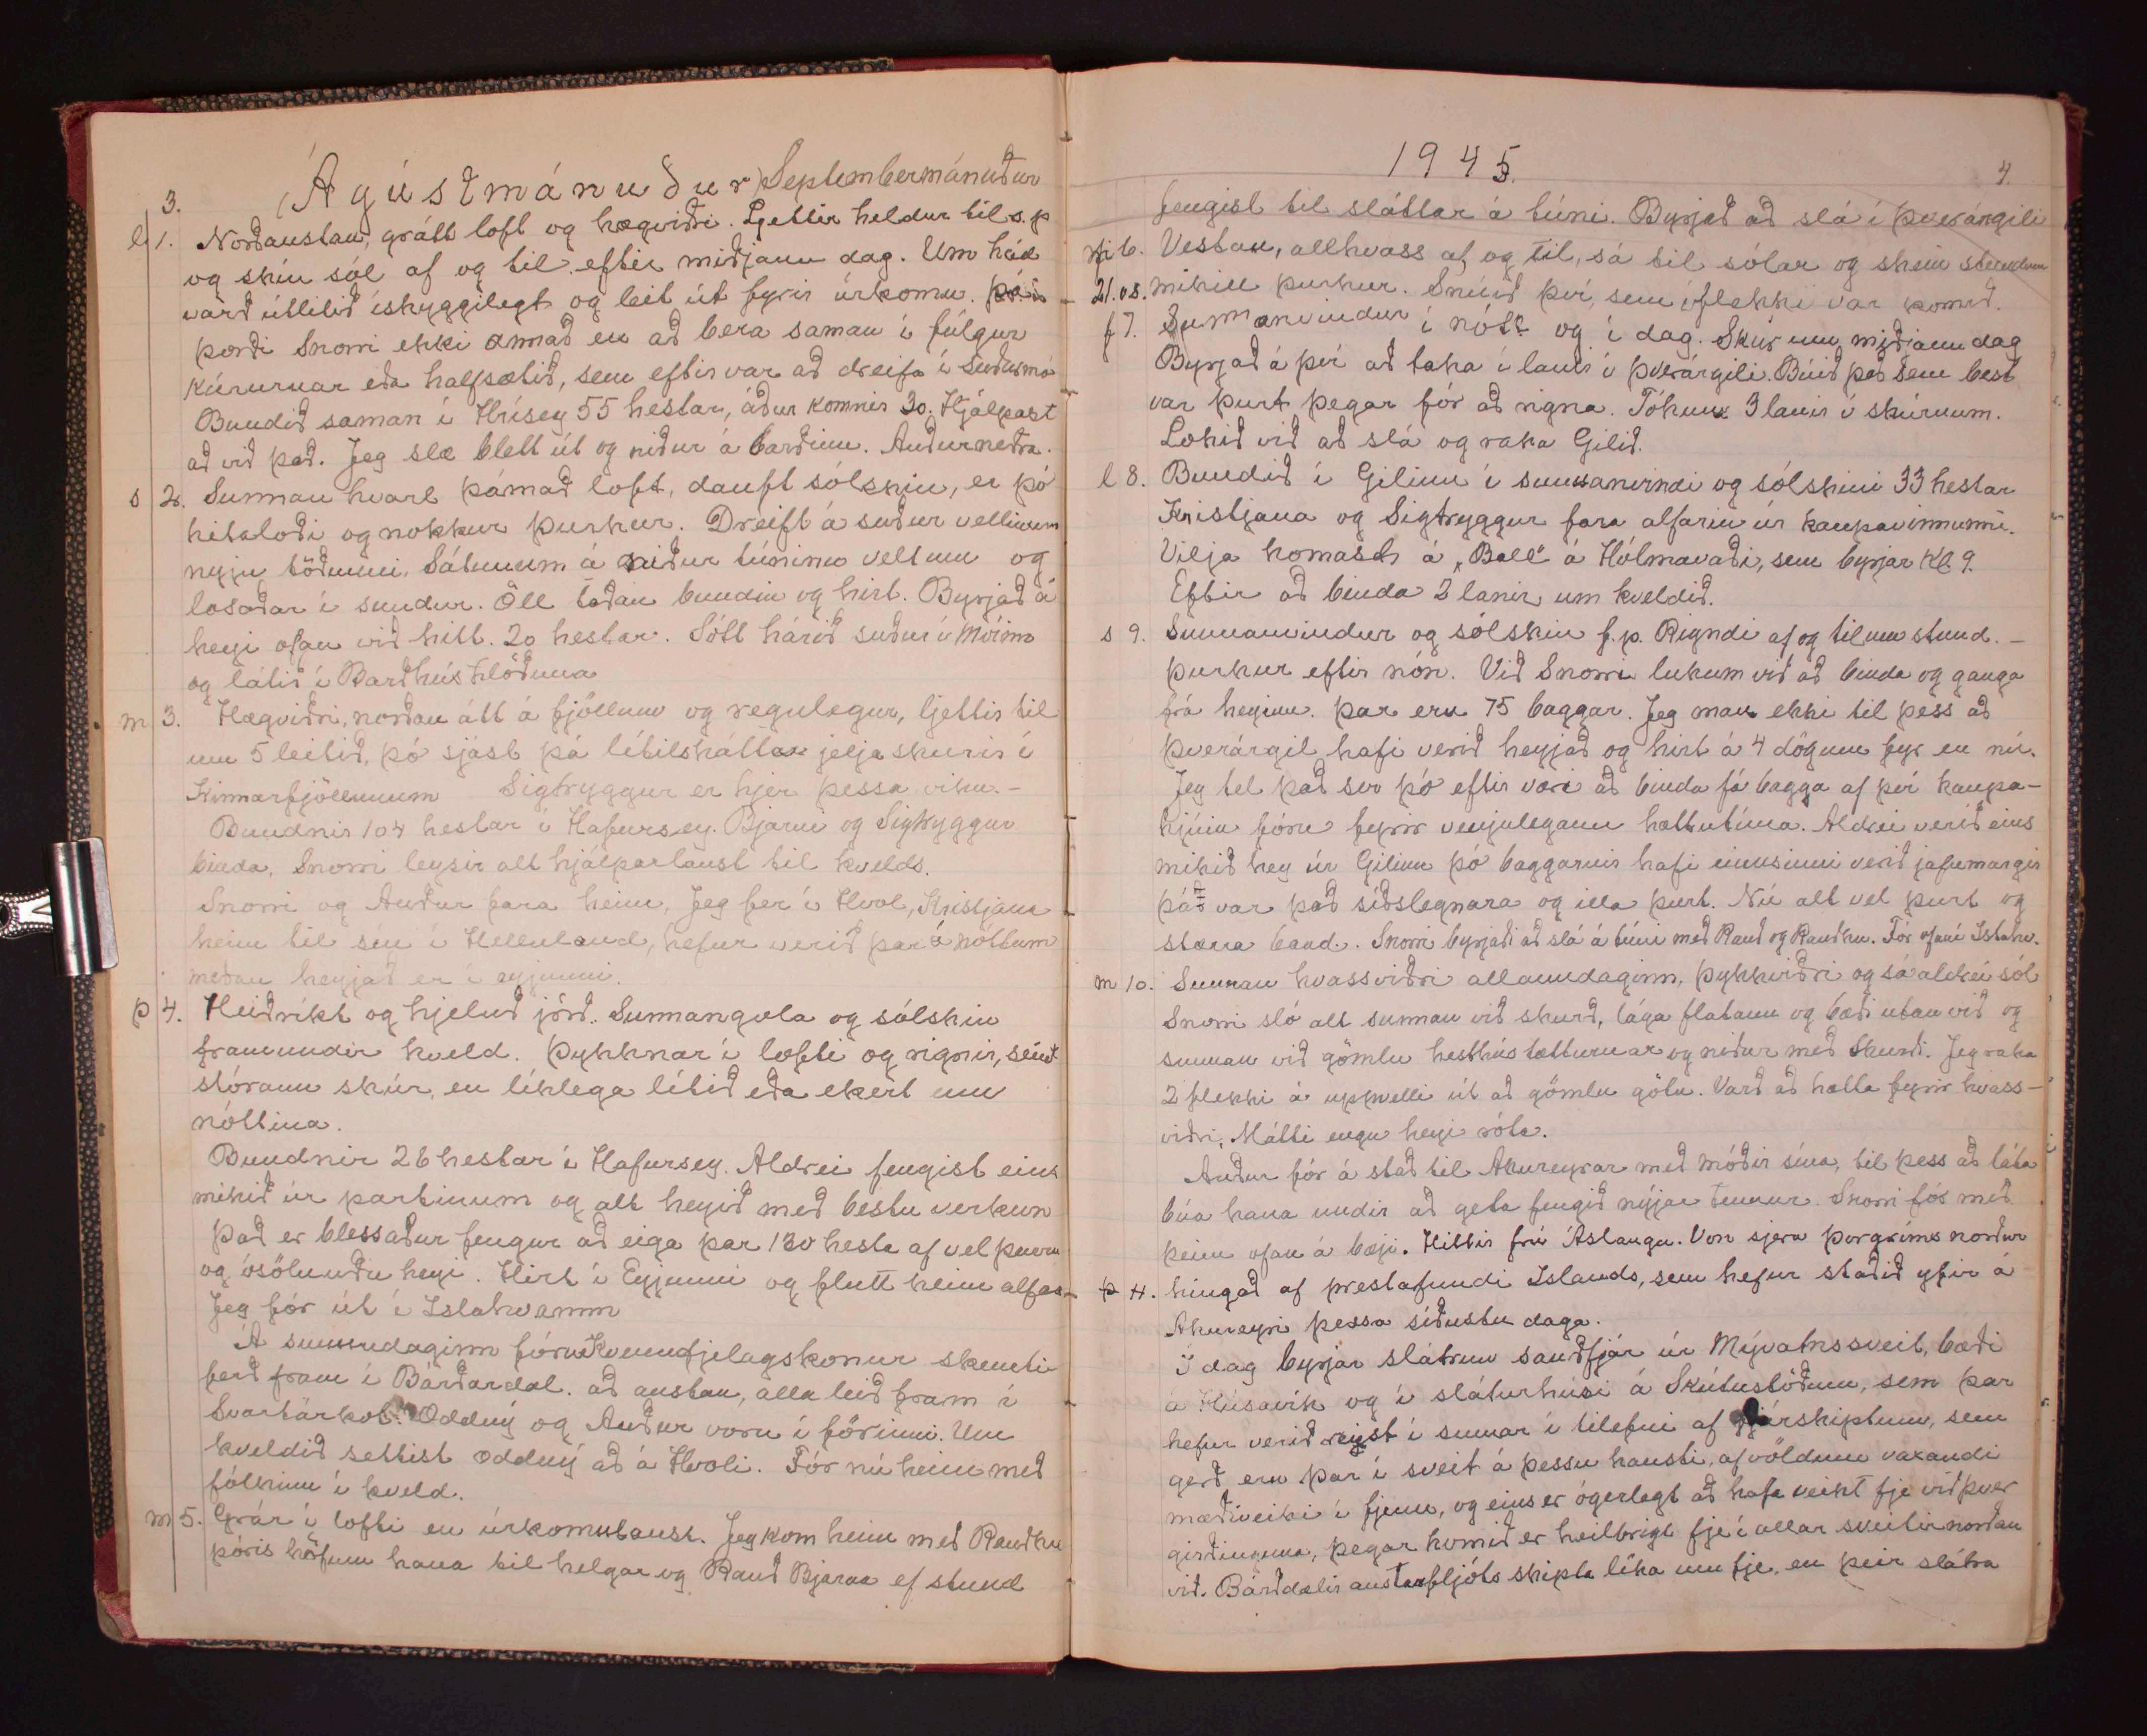 3.
(Ágústmánuður) Septembermánuður
l 1. Norðaustan, grátt loft og hægviðri. Ljettir heldur til s.p
og skín sól af og til eftir miðjann dag. Um hád
varð útlitið ískyggilegt og leit út fyrir úrkomu.
þorði Snorri ekki annað en að bera saman í fúlgur
kúrurnar eða halfsætið, sem eftir var að dreifa í Suðurmó
Bundið saman í Hrísey 55 hestar, áður komnir 30. Hjálpast
að við það. Jeg slæ blett út og niður á barðinu. Auður neðra.
s 2. Sunnan hvarl þámað loft, dauft sólskin, er þó
hitaloði og nokkur þurkur. Dreift á suður vellinum
nyju töðunni. Sátunum á niður túninu veltum og
losaðar í sundur. Öll taðan bundin og hirt. Byrjað á
heyi ofan við hitt. 20 hestar. Sótt hárið suður í Móinn
og látið í Barðhús hlöðuna
m 3. Hægviðri, norðan átt á fjöllum og regulegur, ljettir til
um 5 leitið, þó sjást þá lítilsháttar jeljaskurir í
Kinnarfjöllunum Sigtryggur er hjer þessa viku. -
Bundnir 104 hestar í Hafursey. Bjarni og Sigtryggur
binda, Snorri leysir alt hjálparlaust til kvelds.
Snorri og Auður fara heim, Jeg fer í Hvol, Kristjana
heim til sín í Hellnland, hefur verið þar á nóttum
meðan heyjað er í eyjunni.
þ 4. Heiðríkt og hjeluð jörð. Sunnangola og sólskin
framundir kveld. Þykknar í lofti og rignir, seint
stórann skúr, en líklega lítið eða ekert um
nóttina.
Bundnir 26 hestar í Hafursey. Aldrei fengist eins
mikið úr partinum og alt heyið með bestu verkun
Það er blessaður fengur að eiga þar 130 hesta af vel þurru
og ósöluðu heyi. Hirt í Eyjunni og flutt heim alfar-
Jeg fór út í Islahvamm
Á sunnudaginn fóru Kvennfjelagskonur skemti
ferð fram í Bárðardal. að austan, alla leið fram í
Svartárkot. Oddný og Auður voru í förinni. Um
kveldið settist Oddný að á Hvoli. Fór nú heim með
fólkinu í kveld.
m 5. Grár í lofti en úrkomulaust. Jeg kom heim með Rauðku
Þóris höfum hana til helgar og Rauð Bjarna ef stund
1945.
4.
fengist til sláttar á túni. Byrjað að slá í Þverárgili
fi 6. Vestan, allhvass af og til, sá til sólar og shein stundum
21. v.s. mikill þurkur. Snúið því, sem í flekki var komið.
f 7. Sunnanvindur í nótt og í dag. Skúr um miðjann dag
Byrjað á því að taka í lanir í Þverárgili. Búið það sem best
var þurt þegar fór að rigna. Tókum 3 lanir í skúrnum.
Lokið við að slá og raka Gilið.
l 8. Bundið í Gilinu í sunnanvindi og sólskini 33 hestar
Kristjana og Sigtryggur fara alfarin úr kaupavinnunni.
Vilja komast á „Ball" á Hólmavaði, sem byrjar Kl. 9.
Eftir að binda 2 lanir um kveldið.
s 9. Sunnanvindur og sólskin f.p. Rigndi af og til um stund. -
þurkur eftir nón. Við Snorri lukum við að binda og ganga
frá heyinu. Þar eru 75 baggar. Jeg man ekki til þess að
Þverárgil hafi verið heyjað og hirt á 4 dögum fyr en nú.
Jeg tel það svo þó eftir væri að binda fá bagga af því kaupa-
hjúin fóru fyrir venjulegann hættutíma. Aldrei verið eins
mikið hey úr Gilinu þó baggarnir hafi einusinni verið jafnmargir
þá var það síðslegnara og illa þurt. Nú alt vel þurt og
stærra band. Snorri byrjaði að slá á túni með Rauð og Rauðku. Fór ofaní Islahv.
m 10. Sunnan hvassviðri allanndaginn, þykkviðri og sá aldrei sól
Snorri sló alt sunnan við skurð, lága flatann og bæði utan við og
sunnan við gömlu hesthústætturnar og niður með Skurði. Jeg raka
2 flekki á uppvelli út að gömlu götu. Varð að hætta fyrir hvass-
viðri. Mátti engu heyi róta.
Auður fór á stað til Akureyrar með móðir sína, til þess að láta
búa hana undir að geta fengið nýjar tennur. Snorri fór með
þeim ofan á bæji. Hittir frú Áslaugu. Von sjera Þorgríms norður
þ 11. hingað af prestafundi Islands, sem hefur staðið yfir á
Akureyri þessa síðustu daga.
Í dag byrjar slátrun sauðfjár úr Mývatnssveit, bæði
á Húsavík og í sláturhúsi á Skútustöðum, sem þar
hefur verið reist í sumar í tilefni af fjárskiptum, sem
gerð eru þar í sveit á þessu hausti, af völdum vaxandi
mæðiveiki í fjenu, og eins er ógerlegt að hafa veikt fje við þver
girðinguna, þegar komið er heilbrigt fje í allar sveitir norðan
við. Bárðdælir austanfljóts skipta líka um fje, en þeir slátra